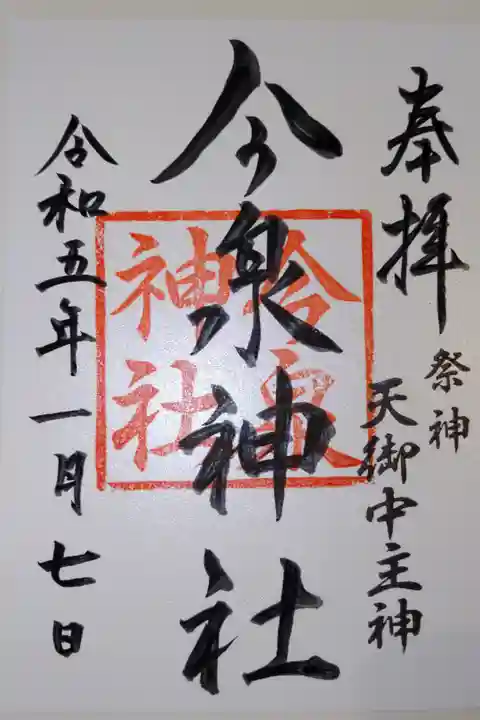 奉拝
祭神
天御中主神
今泉神社
今泉
神社
令和五年一月七日